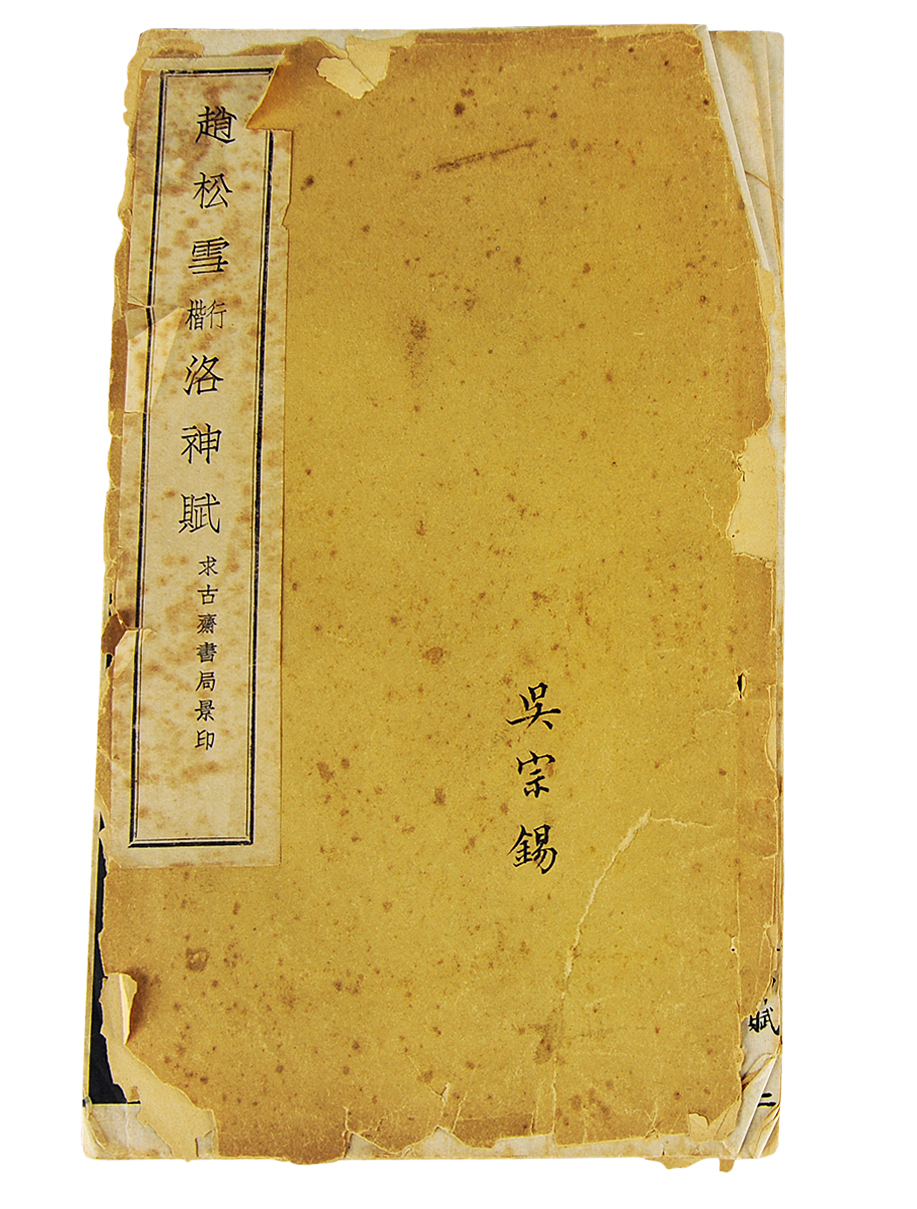 趙松雪行楷洛神賦
求古齋書局景印
吳宗錫
賦
二